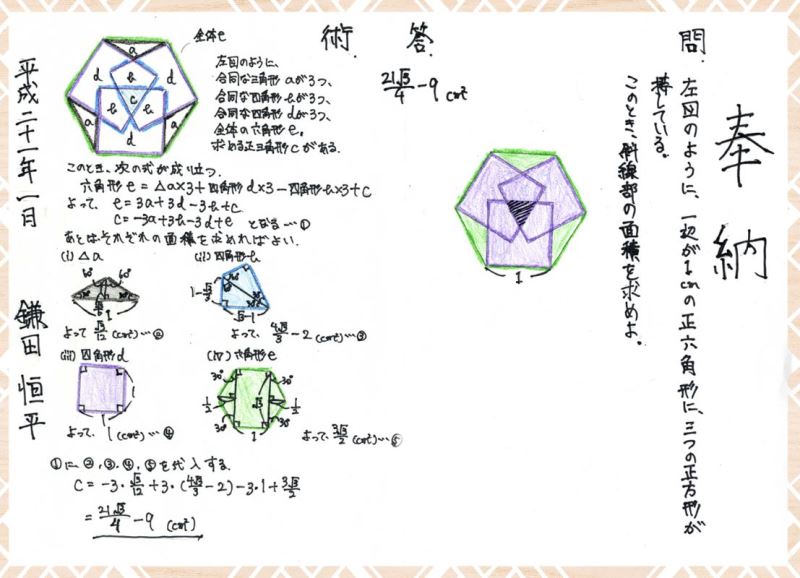 奉納
問.左図のように、一辺が1cmの正六角形に、三つの正方形が
接している。
このとき、斜線部の面積を求めよ。
1
答.
21√3/4-9 cm²
術.
全体e
a
d
d
b
c
a
b
b
a
d
左図のように、
合同な三角形aが3つ、
合同な四角形bが3つ、
合同な四角形dが3つ、
全体の六角形e。
求める正三角形cがある。
このとき、次の式が成り立つ。
六角形e=△a×3+四角形d×3-四角形b×3+c
よって、e=3a+3d-3b+c
c=-3a+3b-3d+e となる…①
あとはそれぞれの面積を求めればよい。
(i)△a
60° 60°
1
よって √3/12 (cm²)…②
(ii)四角形b
√3-1
よって、4√3/3-2 (cm²)…③
(iii)四角形d
1
1
よって、1(cm²)…④
(iv)六角形e
30° 30°
1/2 √3 1/2
30° 30°
1
よって、3√3/2 (cm²)…⑤
①に、②,③,④,⑤を代入する
c=-3・√3/12+3・(4√3/3-2)-3・1+3√3/2
=21√3/4-9 (cm²)
平成二十一年一日
鎌田恒平